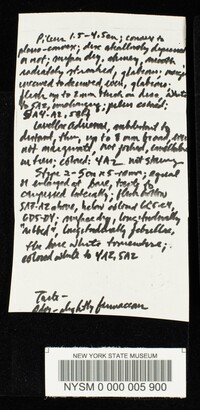 Pileus 1.5-4.5cm; convex to
plano-convex; disc shallowly depressed
or not; surface dry, shiny, smooth
radially streaked, glabrous; margin
incurved to decurved, even, glabrous.
flesh up to 2mm thick on disc, white
to 5A2, unchanging;
5A4-A2, 5B4
Lamellae adnexed, subdistant to
distant, thin, up to 8 mm broad, even
not marginate, not forked,
colored: 4A2 not staining
Stipe 2-5cm x 5-10mm; equal
or enlarged at base, terete to
compressed laterally; flesh
5A7-A2 above, below colored
surface dry, longitudinally
"ribbed",
the base white tomentose;
colored white to 4A2, 5A2
Taste-
Odor-slightly farinaceous
NEW YORK STATE MUSEUM
NYSM 0 000 005 900